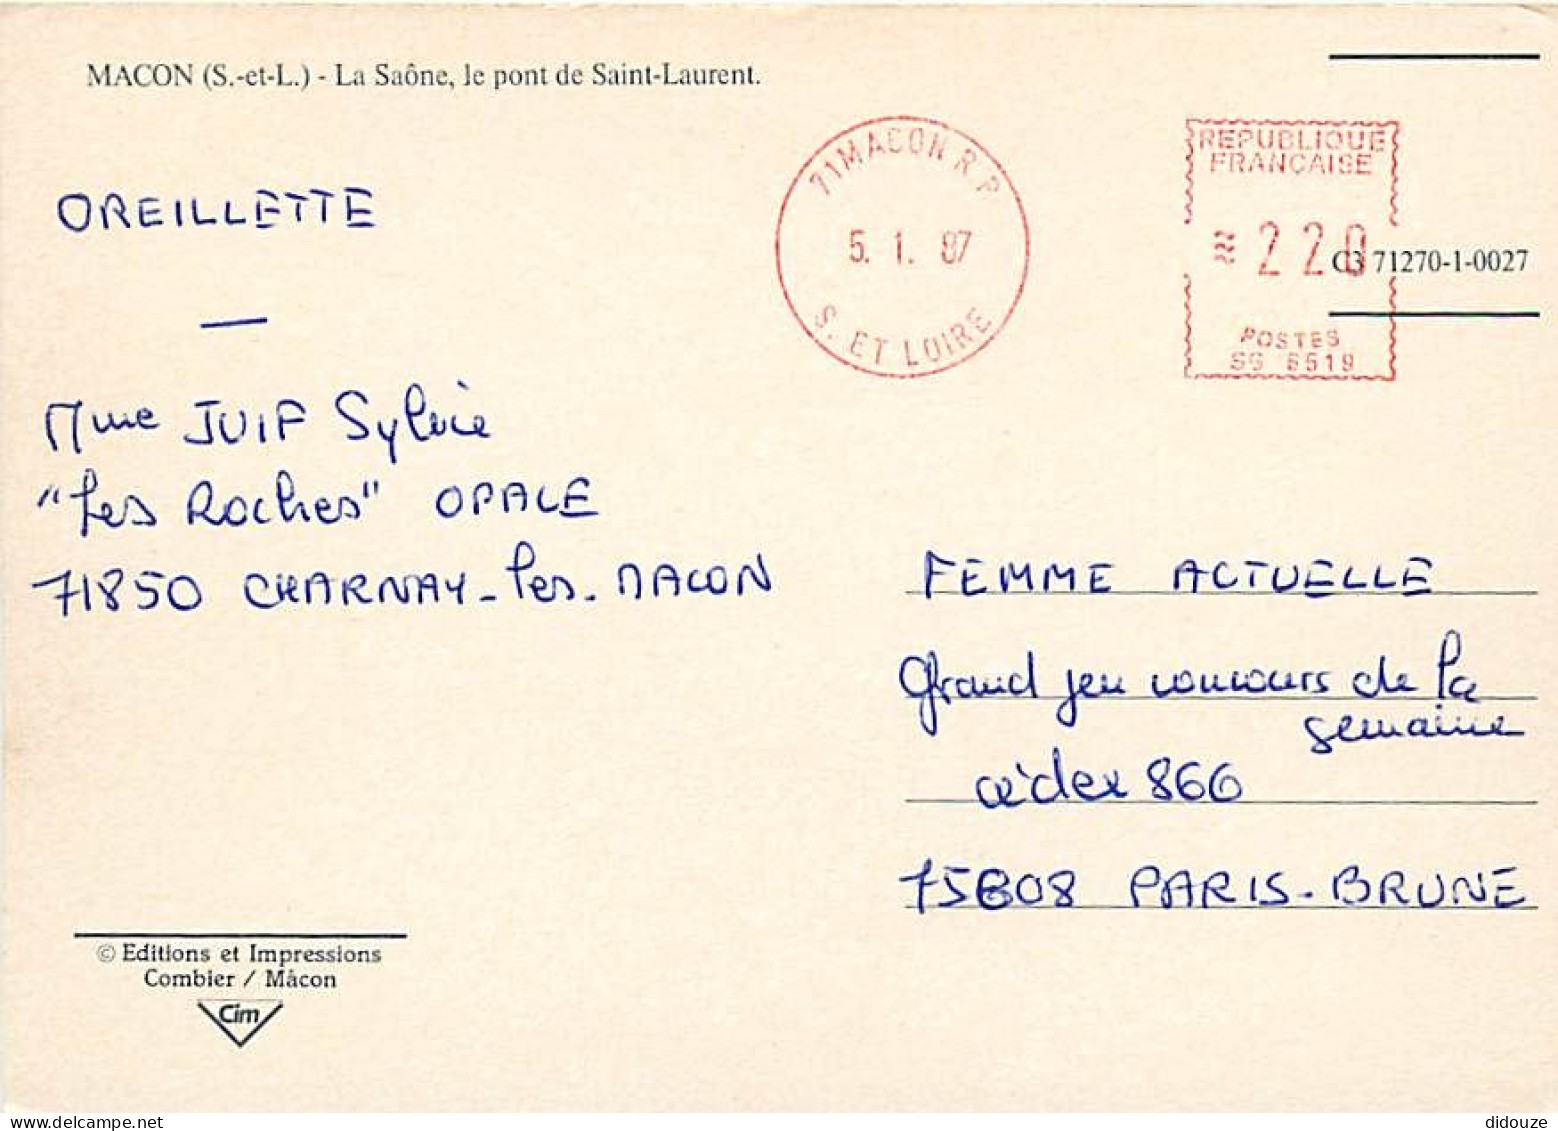 MACON (S.-et-L.) - La Saône, le pont de Saint-Laurent.
71 MACON R P
5. 1. 87
S. ET LOIRE
REPUBLIQUE
FRANÇAISE
220
C3 71270-1-0027
POSTES
SG 6519
OREILLETTE
—
Mme JUIF Sylvie
"Les Roches" OPALE
71850 CHARNAY-les-MACON
FEMME ACTUELLE
Grand jeu concours de la
semaine
cédex 866
75808 PARIS-BRUNE
© Editions et Impressions
Combier / Mâcon
Cim
didouze